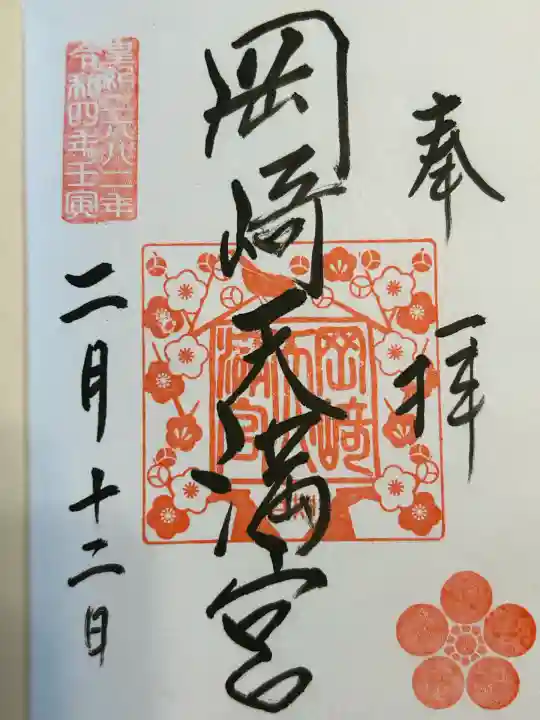 奉拝
岡崎天満宮
岡崎天満宮
皇紀二六八二年
令和四年壬寅
二月十二日